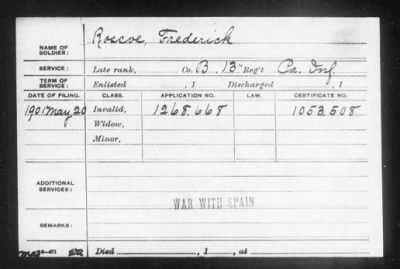 NAME OF SOLDIER: Roscoe, Frederick
SERVICE: Late rank, Co. B, 13" Reg't Pa. Inf.
TERM OF SERVICE: Enlisted , 1 Discharged , 1
DATE OF FILING. CLASS. APPLICATION NO. LAW. CERTIFICATE NO.
1901 May 20 Invalid, 1268.668 1053.508
Widow,
Minor,
ADDITIONAL SERVICES:
WAR WITH SPAIN
REMARKS:
Died , 1 , at